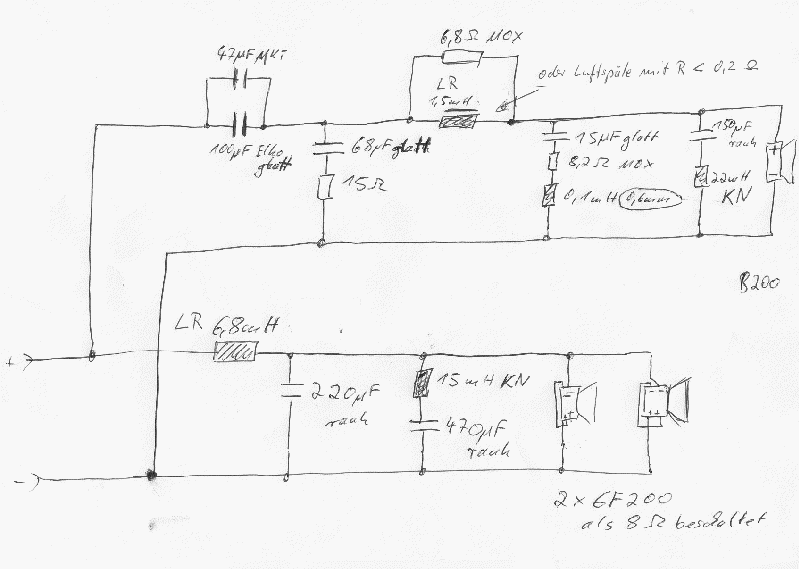 47µF MKT
100µF Elko
glatt
68µF glatt
15Ω
6,8Ω MOX
LR
1,5mH
oder Luftspüle mit R < 0,2 Ω
15µF glatt
8,2Ω MOX
0,1mH 0,6mm
150µF
rauh
22mH
KN
+
-
B200
LR 6,8mH
220µF
rauh
15mH KN
470µF
rauh
+
-
2 x GF200
als 8Ω beschaltet